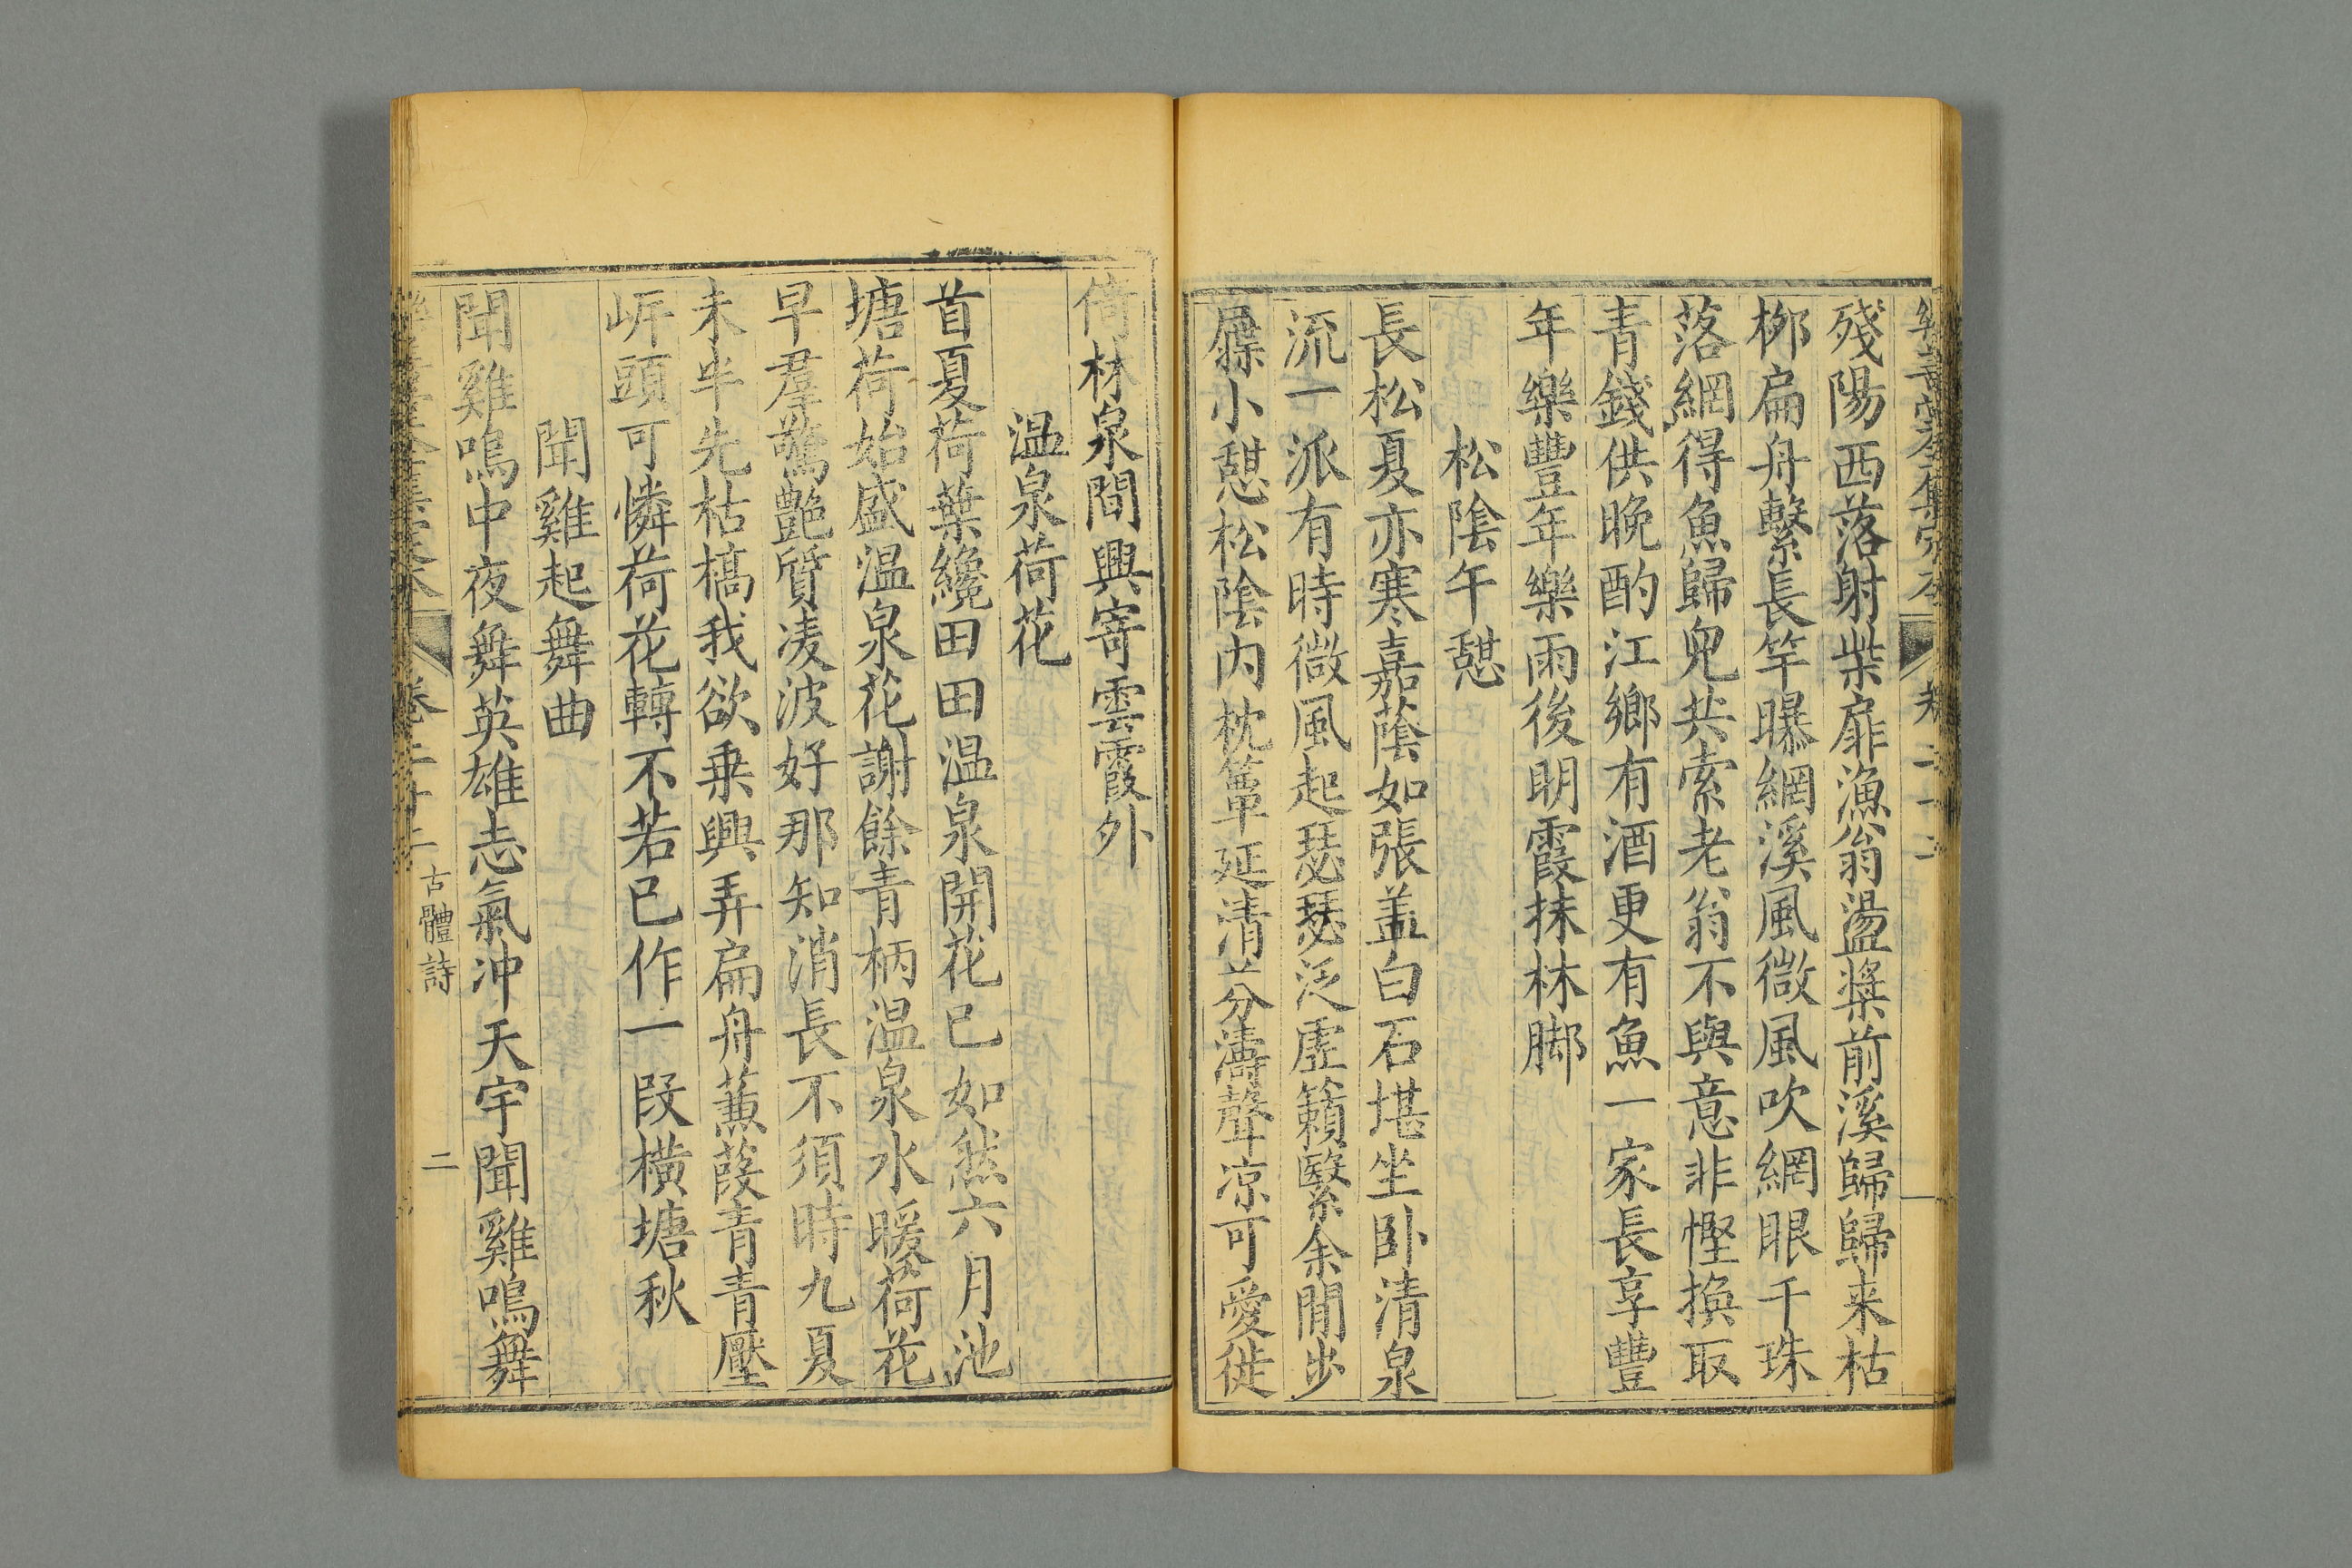 樂善堂全集定本
卷二十二
殘陽西落射柴扉漁翁盪槳前溪歸歸来枯
桞扁舟繫長竿曝網溪風微風吹網眼千珠
落網得魚歸兒共索老翁不與意非慳換取
青錢供晚酌江鄉有酒更有魚一家長享豐
年樂豐年樂雨後明霞抹林脚
松陰午憇
長松夏亦寒嘉蔭如張盖白石堪坐卧清泉
流一派有時微風起瑟瑟泛虛籟繄余閒步
屧小憇松陰内枕簟延清芬濤聲凉可愛徙
倚林泉間興寄雲霞外
温泉荷花
首夏荷葉纔田田温泉開花已如然六月池
塘荷始盛温泉花謝餘青柄温泉水暖荷花
早羣驚艷質凌波好那知消長不須時九夏
未半先枯槁我欲乗興弄扁舟蒹葭青青壓
岍頭可憐荷花轉不若已作一段橫塘秋
聞雞起舞曲
聞雞鳴中夜舞英雄志氣冲天宇聞雞鳴舞
樂善堂全集定本
卷二十二
古體詩
二